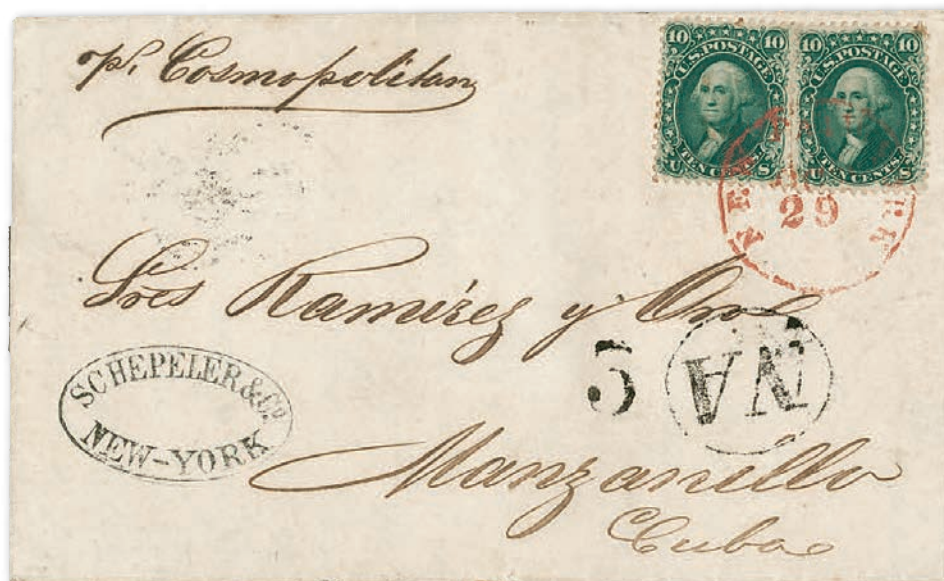 pr. Cosmopolitan
10 10
U.S. POSTAGE
TEN CENTS
U S
10 10
U.S. POSTAGE
TEN CENTS
U S
29
Sres Ramirez y Oro
5
NA
SCHEPELER & Co
NEW-YORK
Manzanillo
Cuba